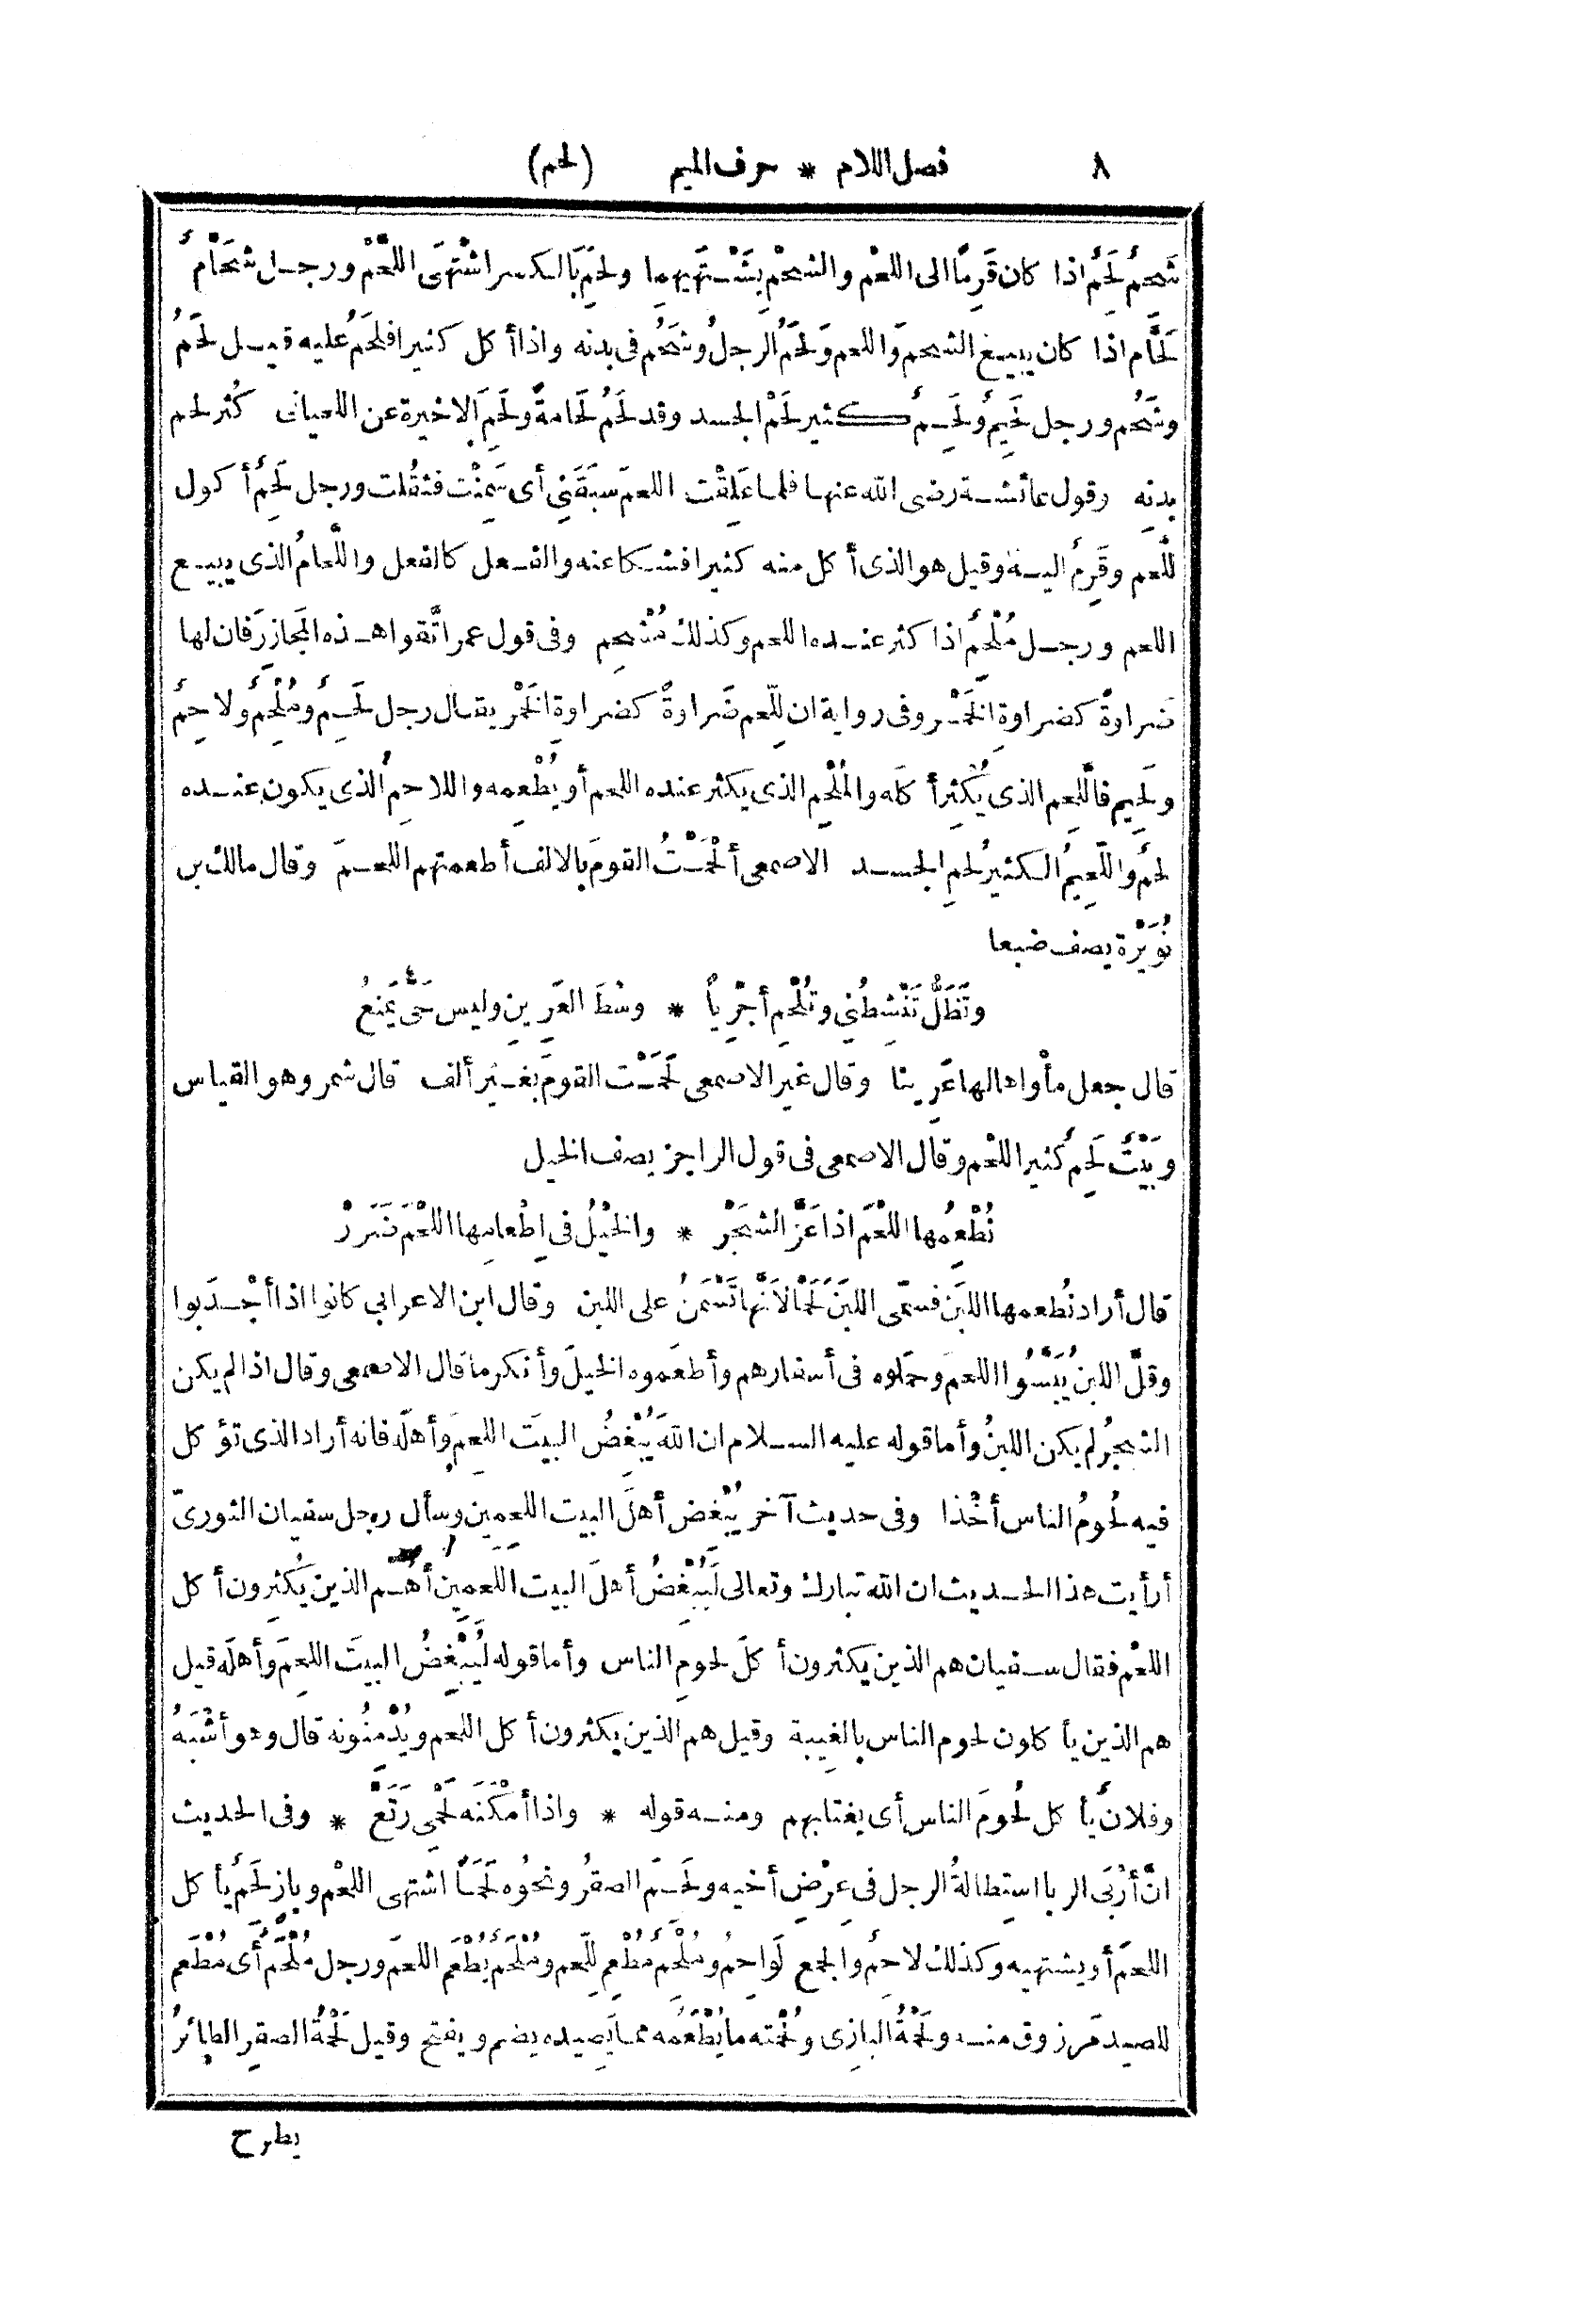 ٨ فصل اللام * حرف الميم (لحم)
شَحِمٌ لَحِمٌ اذا كان قَرِمًا الى اللحْم والشحْم يَشْتَهيهما ولَحِمَ بالكسر اشْتَهَى اللَّحْم ورجل شَحّامٌ
لَحّام اذا كان يبيع الشحم واللحم ولَحُمَ الرجلُ وشَحُم فى بدنه واذا أكل كثيرا فلَحُمَ عليه قيل لَحُمَ
وشَحُم ورجل لَحِيمٌ ولَحِمٌ كثير لَحْم الجسد وقد لَحُم لَحامةً ولَحِم الاخيرة عن اللحيانى كثُر لحم
بدنِه وقول عائشة رضى الله عنها فلما عَلِقْت اللحمَ سبَقَنِي أى سَمِنْت فثقُلت ورجل لَحِمٌ أكول
للَّحم وقَرِمٌ اليه وقيل هو الذى أكل منه كثيرا فشكا عنه والفعل كالفعل واللَّحامُ الذى يبيع
اللحم ورجل مُلْحِمٌ اذا كثر عنده اللحم وكذلك مُشْحِم وفى قول عمر اتَّقوا هذه المَجازِرَ فان لها
ضراوةً كضراوةِ الخَمْر وفى رواية ان لِلَّحم ضَراوةً كضراوةِ الخَمْر يقال رجل لَحِمٌ ومُلْحِمٌ ولاحِمٌ
ولَحِيم فاللَّحِم الذى يُكْثِر أكلَه والمُلْحِم الذى يكثر عنده اللحم أو يُطْعِمه واللاحِمُ الذى يكون عنده
لحمٌ واللَّحِيمُ الكثيرُ لحمِ الجسد الاصمعى أَلْحَمْتُ القومَ بالالف أطعمتهم اللحمَ وقال مالك بن
نُوَيْرة يصف ضبعا
وتَظَلُّ تَنْشِطُنِي وتُلْحِم أَجْرِياً * وسْطَ العَرِينِ وليس حَىٌّ يَمنعُ
قال جعل مأواها لها عَرِينا وقال غير الاصمعى لَحَمْت القومَ بغير ألف قال شمر وهو القياس
وبَيْتٌ لَحِمٌ كثير اللحْم وقال الاصمعى فى قول الراجز يصف الخيل
نُطْعِمُها اللحْمَ اذا عَزَّ الشَّجَرْ * والخَيْلُ فى إطْعامِها اللحْمَ ضَرَرْ
قال أراد نُطعمها اللبَن فسمّى اللبَنَ لَحْما لانَّها تَسْمَنُ على اللبن وقال ابن الاعرابي كانوا اذا أجْدَبوا
وقلَّ اللبنُ يَبَّسُوا اللحمَ وحمَلوه فى أسفارهم وأطعَموه الخيلَ وأنكر ما قال الاصمعى وقال اذا لم يكن
الشجرُ لم يكن اللبنُ وأما قوله عليه السلام ان اللهَ يُبْغِضُ البيتَ اللحِمَ وأهلَه فانه أراد الذى تؤكل
فيه لُحومُ الناس أخْذا وفى حديث آخر يُبْغِض أهلَ البيت اللحِمِين وسأل رجل سفيان الثورىّ
أرأيت هذا الحديث ان الله تبارك وتعالى لَيُبْغِضُ أهلَ البيت اللَّحِمِين أهُم الذين يُكْثِرون أكل
اللحْم فقال سفيان هم الذين يكثرون أكلَ لحومِ الناس وأما قوله لَيُبْغِضُ البيتَ اللحِمَ وأهلَه قيل
هم الذين يأكلون لحوم الناس بالغِيبة وقيل هم الذين يكثرون أكل اللحم ويُدْمِنُونه قال وهو أشْبَهُ
وفلانٌ يأكل لُحومَ الناس أى يغتابهم ومنه قوله * واذا أمْكَنَه لَحْمِى رَتَعْ * وفى الحديث
انَّ أرْبَى الربا استِطالةُ الرجل فى عِرْضِ أخيه ولَحِمَ الصقرُ ونحوُه لَحَماً اشتهى اللحْم وبازٍ لَحِمٌ يأكل
اللحمَ أو يشتهيه وكذلك لاحِمٌ والجمع لَواحِمُ ومُلْحِمٌ مُطْعِم لِلَّحم ومُلْحَمٌ يُطْعَم اللحمَ ورجل مُلْحَمٌ أى مُطْعَم
للصيد مَرزوق منه ولَحْمَةُ البازِى ولُحْمَته ما يُطْعَمُه مما يَصِيده يضم ويفتح وقيل لَحْمةُ الصقرِ الطائرُ
يطرح